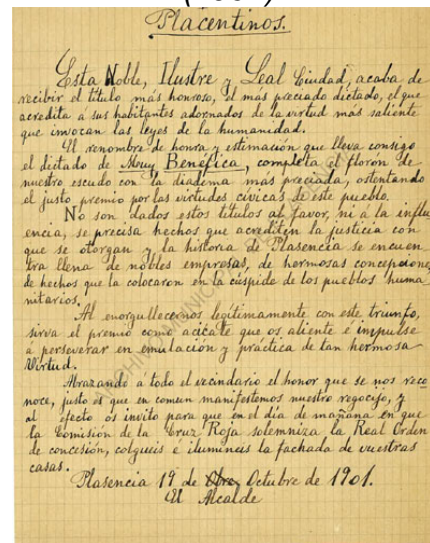 Placentinos.
Esta Noble, Ilustre y Leal Ciudad, acaba de
recibir el título más honroso, el más preciado dictado, el que
acredita á sus habitantes adornados de la virtud más saliente
que invocan las leyes de la humanidad.
El renombre de honra y estimación que lleva consigo
el dictado de Muy Benéfica, completa el florón de
nuestro escudo con la diadema más preciada, ostentando
el justo premio por las virtudes cívicas de este pueblo.
No son dados estos títulos al favor, ni á la influ
encia, se precisa hechos que acrediten la justicia con
que se otorgan y la historia de Plasencia se encuen
tra llena de nobles empresas, de hermosas concepciones,
de hechos que la colocaron en la cúspide de los pueblos huma
nitarios.
Al enorgullecernos legítimamente con este triunfo,
sirva el premio como acicate que os aliente é impulse
á perseverar en emulación y práctica de tan hermosa
Virtud.
Abrazando á todo el vecindario el honor que se nos reco
noce, justo es que en comun manifestemos nuestro regocijo, y
al efecto os invito para que en el día de mañana en que
la Comisión de la Cruz Roja solemniza la Real Orden
de concesión, colgueis é ilumineis la fachada de vuestras
casas.
Plasencia 19 de Octubre de 1901.
El Alcalde